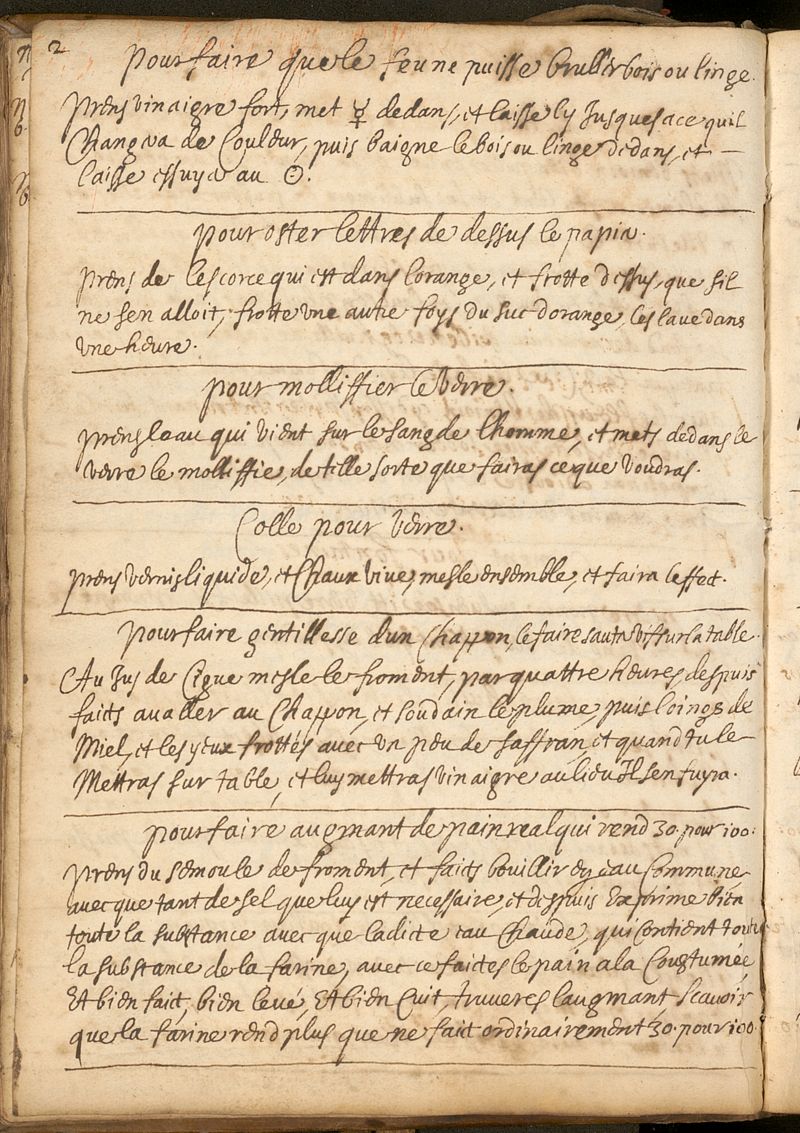 2
Pour faire que le feu ne puisse bruller bois ou linge.
prens vinaigre fort, met ☿ dedans, et laisse ly Jusques a ce quil
Changea de Couleur, puis baigne le bois ou linge dedans, et —
laisse essuyer au ☉.
pour oster lettres de dessus le papier.
prens de lescorce qui est dans lorange, et frotte dessus, que sil
ne sen alloit, frotte une autre foys du suc dorange, les lave dans
une heure.
pour molliffier le verre.
prens leau qui vient sur le sang de lhomme, et mets dedans le
verre le molliffie, de telle sorte que fairas ce que voudras.
Colle pour verre.
prens vernis liquide, et Chaux vive, mesle ensemble, et faira leffect.
Pour faire gentillesse dun Chappon, le faire sauter vif sur la table.
Au Jus de Cigue mesle le froment, par quattre heures despuis
faicts avaller au Chappon, et soudain le plume, puis loings de
Miel, et les yeux frottés avec un peu de saffran, et quand tu le
Mettras sur table, et luy mettras vinaigre au lieu Il sen fuyra.
pour faire augmant de pain real qui rend 30. pour 100.
prens du semoule de froment, et faicts bouillir en eau Commune
avecque tant de sel que luy est necessaire, et despuis Exprime bien
toute la substance avecque ladicte eau Chaude, qui Contient toute
la substance de la farine, avec ce faictes le pain a la Coustumée
Et bien faict, bien levé, Et bien Cuit, truveres laugmant, Scavoir
que la farine rend plus que ne faict ordinairement 30. pour 100.